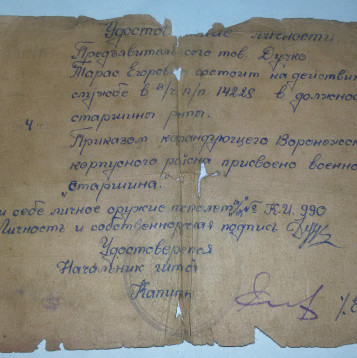 Удостов ние личности
Предъявитель сего тов. Дучко
Тарас Егоров состоит на действит
службе в в/ч п/п 14228 в должнос
старшины роты.
Приказом командующего Воронежск
корпусного района присвоено военно
"Старшина."
и себе личное оружие пистолет № К.И. 990
Личность и собственноручная подпись
Удостоверяется
Начальник штаб
Капитан